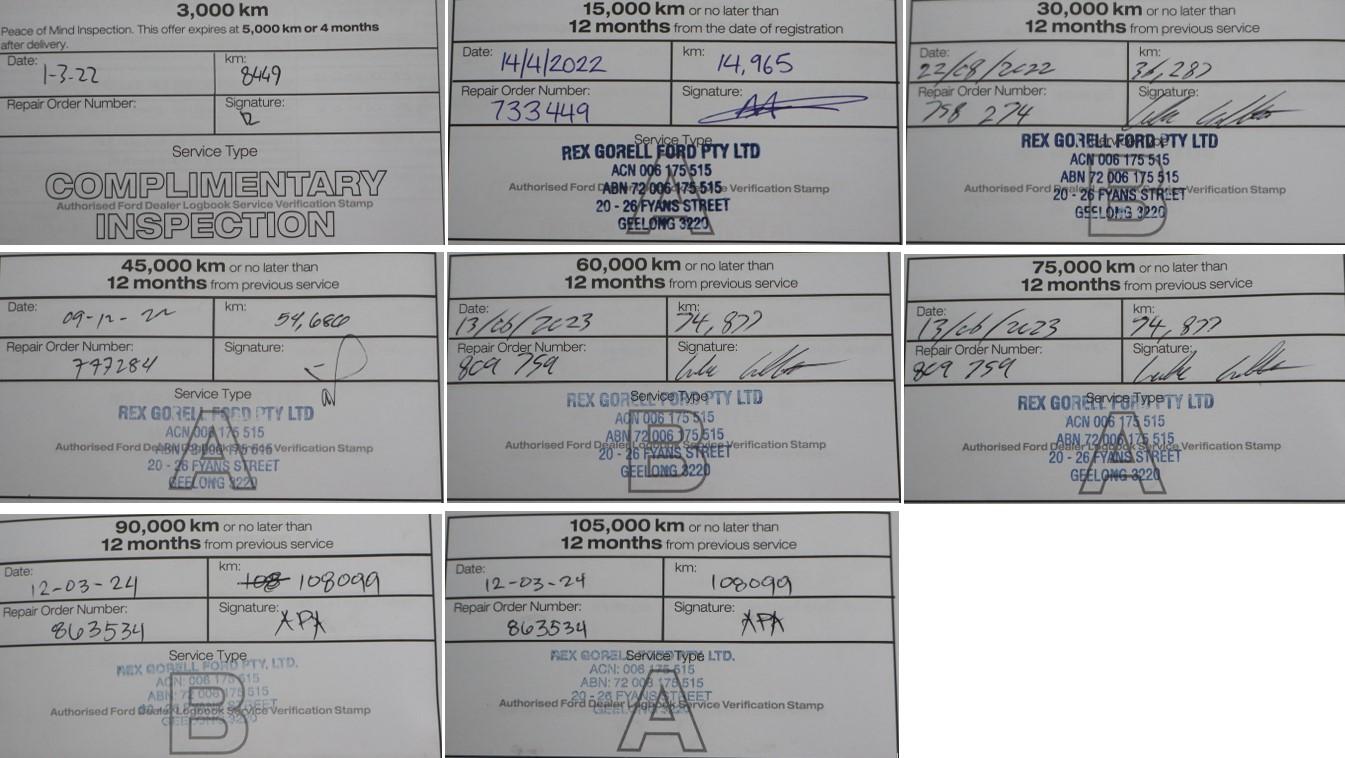 3,000 km
Peace of Mind Inspection. This offer expires at 5,000 km or 4 months
after delivery.
Date:
1-3-22
km:
8449
Repair Order Number:
Signature:
Service Type
COMPLIMENTARY
Authorised Ford Dealer Logbook Service Verification Stamp
INSPECTION
15,000 km or no later than
12 months from the date of registration
Date:
14/4/2022
km:
14,965
Repair Order Number:
733449
Signature:
Service Type
REX GORELL FORD PTY LTD
ACN 006 175 515
A
Authorised Ford Dealer Logbook Service Verification Stamp
ABN 72 006 175 515
20 - 26 FYANS STREET
GEELONG 3220
30,000 km or no later than
12 months from previous service
Date:
22/08/2022
km:
Repair Order Number:
798 274
Signature:
Service Type
REX GORELL FORD PTY LTD
ACN 006 175 515
ABN 72 006 175 515
B
Authorised Ford Dealer Logbook Service Verification Stamp
20 - 26 FYANS STREET
GEELONG 3220
45,000 km or no later than
12 months from previous service
Date:
09-12-22
km:
54,680
Repair Order Number:
777284
Signature:
Service Type
REX GORELL FORD PTY LTD
ACN 006 175 515
A
Authorised Ford Dealer Logbook Service Verification Stamp
ABN 72 006 175 515
20 - 26 FYANS STREET
GEELONG 3220
60,000 km or no later than
12 months from previous service
Date:
13/06/2023
km:
74,877
Repair Order Number:
809 759
Signature:
Service Type
REX GORELL FORD PTY LTD
ACN 006 175 515
ABN 72 006 175 515
B
Authorised Ford Dealer Logbook Service Verification Stamp
20 - 26 FYANS STREET
GEELONG 3220
75,000 km or no later than
12 months from previous service
Date:
13/06/2023
km:
74,877
Repair Order Number:
809 759
Signature:
Service Type
REX GORELL FORD PTY LTD
ACN 006 175 515
ABN 72 006 175 515
A
Authorised Ford Dealer Logbook Service Verification Stamp
20 - 26 FYANS STREET
GEELONG 3220
90,000 km or no later than
12 months from previous service
Date:
12-03-24
km:
108 108099
Repair Order Number:
863534
Signature:
APA
Service Type
REX GORELL FORD PTY, LTD.
ACN: 006 175 515
ABN: 72 006 175 515
B
Authorised Ford Dealer Logbook Service Verification Stamp
20 - 26 FYANS STREET
GEELONG 3220
105,000 km or no later than
12 months from previous service
Date:
12-03-24
km:
108099
Repair Order Number:
863534
Signature:
APA
Service Type
REX GORELL FORD PTY, LTD.
ACN: 006 175 515
ABN: 72 006 175 515
20 - 26 FYANS STREET
A
Authorised Ford Dealer Logbook Service Verification Stamp
GEELONG 3220